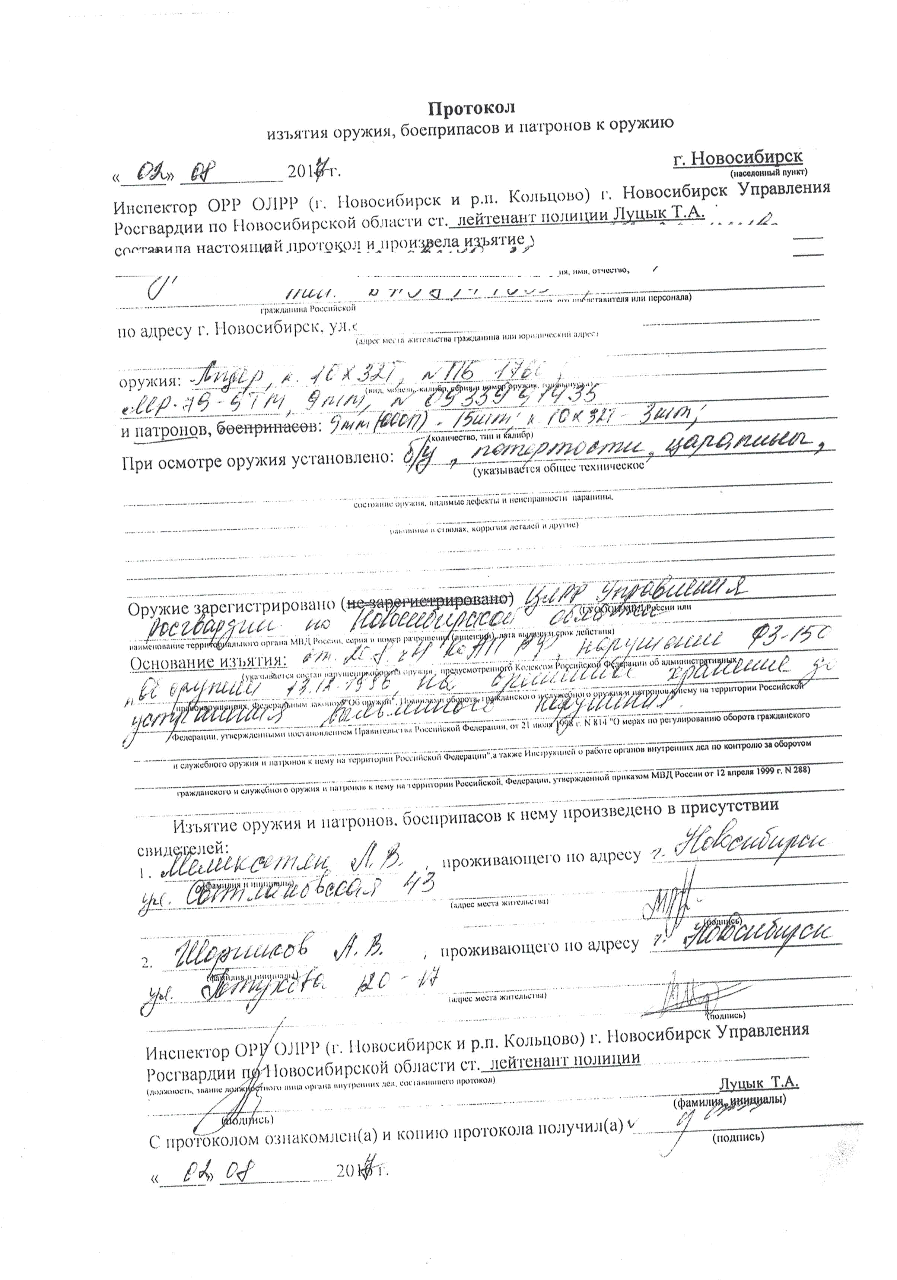 Протокол
изъятия оружия, боеприпасов и патронов к оружию
« 02 » 08 2017 г. г. Новосибирск
(населенный пункт)
Инспектор ОРР ОЛРР (г. Новосибирск и р.п. Кольцово) г. Новосибирск Управления
Росгвардии по Новосибирской области ст. лейтенант полиции Луцык Т.А.
составила настоящий протокол и произвела изъятие
имя, отчество,
представителя или персонала)
гражданина Российской
по адресу г. Новосибирск, ул.
(адрес места жительства гражданина или юридический адрес)
оружия: Лидер, к. 10х32Т, №
(вид, модель, калибр, серия и номер оружия,
МР-79-9ТМ, 9мм, № 0933957435
и патронов, боеприпасов: 9мм - 15шт; к 10х32Т - 3шт;
(количество, тип и калибр)
При осмотре оружия установлено: б/у, потертости, царапины,
(указывается общее техническое
состояние оружия, видимые дефекты и неисправности царапины,
раковины в стволах, коррозия деталей и другие)
Оружие зарегистрировано (не зарегистрировано) ЦЛРР Управления
МВД России или
Росгвардии по Новосибирской области
наименование территориального органа МВД России, серия и номер разрешения (лицензии), дата выдачи и срок действия)
Основание изъятия: КоАП РФ, нарушении ФЗ-150
(указывается состав нарушения оборота оружия, предусмотренного Кодексом Российской Федерации об административных
"Об оружии" 13.12.1996, на временное хранение до
правонарушениях, Федеральным законом "Об оружии", Правилами оборота гражданского и служебного оружия и патронов к нему на территории Российской
устранения выявленного нарушения.
Федерации, утвержденными постановлением Правительства Российской Федерации, от 21 июля 1998 г. N 814 "О мерах по регулированию оборота гражданского
и служебного оружия и патронов к нему на территории Российской Федерации", а также Инструкцией о работе органов внутренних дел по контролю за оборотом
гражданского и служебного оружия и патронов к нему на территории Российской, Федерации, утвержденной приказом МВД России от 12 апреля 1999 г. N 288)
Изъятие оружия и патронов, боеприпасов к нему произведено в присутствии
свидетелей:
1. А.В., проживающего по адресу г. Новосибирск
(фамилия и инициалы)
ул. 43
(адрес места жительства) (подпись)
2. А.В., проживающего по адресу г. Новосибирск
(фамилия и инициалы)
ул. 120-17
(адрес места жительства)
(подпись)
Инспектор ОРР ОЛРР (г. Новосибирск и р.п. Кольцово) г. Новосибирск Управления
Росгвардии по Новосибирской области ст. лейтенант полиции
(должность, звание должностного лица органа внутренних дел, составившего протокол)
Луцык Т.А.
(подпись) (фамилия, инициалы)
С протоколом ознакомлен(а) и копию протокола получил(а)
(подпись)
« 02 » 08 2017 г.